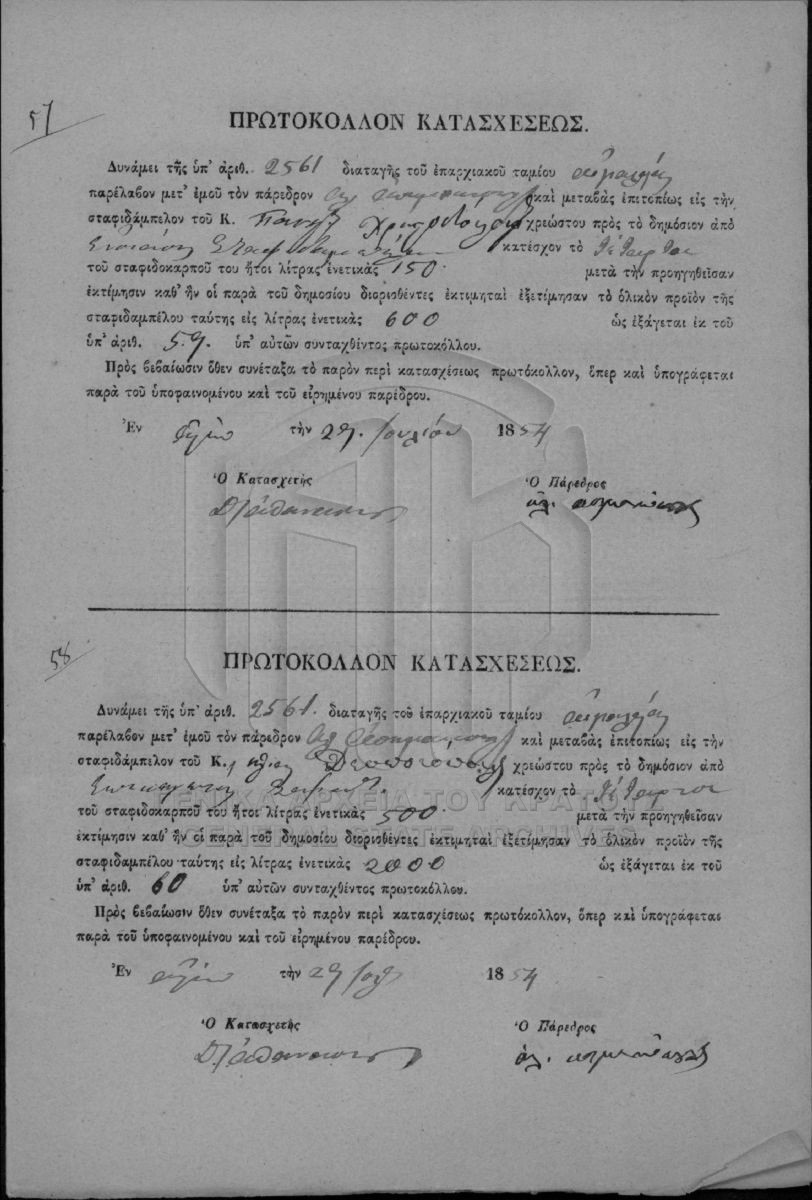 57
ΠΡΩΤΟΚΟΛΛΟΝ ΚΑΤΑΣΧΕΣΕΩΣ.
Δυνάμει τῆς ὑπ' ἀριθ. 2561 διαταγῆς τοῦ ἐπαρχιακοῦ ταμίου
παρέλαβον μετ' ἐμοῦ τὸν πάρεδρον καὶ μεταβὰς ἐπιτοπίως εἰς τὴν
σταφιδάμπελον τοῦ Κ. χρεώστου πρὸς τὸ δημόσιον ἀπὸ
κατέσχον τὸ τέταρτον
τοῦ σταφιδοκαρποῦ του ἤτοι λίτρας ἑνετικὰς 150. μετὰ τὴν προηγηθεῖσαν
ἐκτίμησιν καθ' ἣν οἱ παρὰ τοῦ δημοσίου διορισθέντες ἐκτιμηταὶ ἐξετίμησαν τὸ ὁλικὸν προϊὸν τῆς
σταφιδαμπέλου ταύτης εἰς λίτρας ἑνετικὰς 600 ὡς ἐξάγεται ἐκ τοῦ
ὑπ' ἀριθ. 59. ὑπ' αὐτῶν συνταχθέντος πρωτοκόλλου.
Πρὸς βεβαίωσιν ὅθεν συνέταξα τὸ παρὸν περὶ κατασχέσεως πρωτόκολλον, ὅπερ καὶ ὑπογράφεται
παρὰ τοῦ ὑποφαινομένου καὶ τοῦ εἰρημένου παρέδρου.
Ἐν τὴν 29. Ιουλίου 1854
Ὁ Κατασχετὴς Ὁ Πάρεδρος
58
ΠΡΩΤΟΚΟΛΛΟΝ ΚΑΤΑΣΧΕΣΕΩΣ.
Δυνάμει τῆς ὑπ' ἀριθ. 2561. διαταγῆς τοῦ ἐπαρχιακοῦ ταμίου
παρέλαβον μετ' ἐμοῦ τὸν πάρεδρον καὶ μεταβὰς ἐπιτοπίως εἰς τὴν
σταφιδάμπελον τοῦ Κ. χρεώστου πρὸς τὸ δημόσιον ἀπὸ
κατέσχον τὸ τέταρτον
τοῦ σταφιδοκαρποῦ του ἤτοι λίτρας ἑνετικὰς 500. μετὰ τὴν προηγηθεῖσαν
ἐκτίμησιν καθ' ἣν οἱ παρὰ τοῦ δημοσίου διορισθέντες ἐκτιμηταὶ ἐξετίμησαν τὸ ὁλικὸν προϊὸν τῆς
σταφιδαμπέλου ταύτης εἰς λίτρας ἑνετικὰς 2000 ὡς ἐξάγεται ἐκ τοῦ
ὑπ' ἀριθ. 60 ὑπ' αὐτῶν συνταχθέντος πρωτοκόλλου.
Πρὸς βεβαίωσιν ὅθεν συνέταξα τὸ παρὸν περὶ κατασχέσεως πρωτόκολλον, ὅπερ καὶ ὑπογράφεται
παρὰ τοῦ ὑποφαινομένου καὶ τοῦ εἰρημένου παρέδρου.
Ἐν τὴν 29 1854
Ὁ Κατασχετὴς Ὁ Πάρεδρος